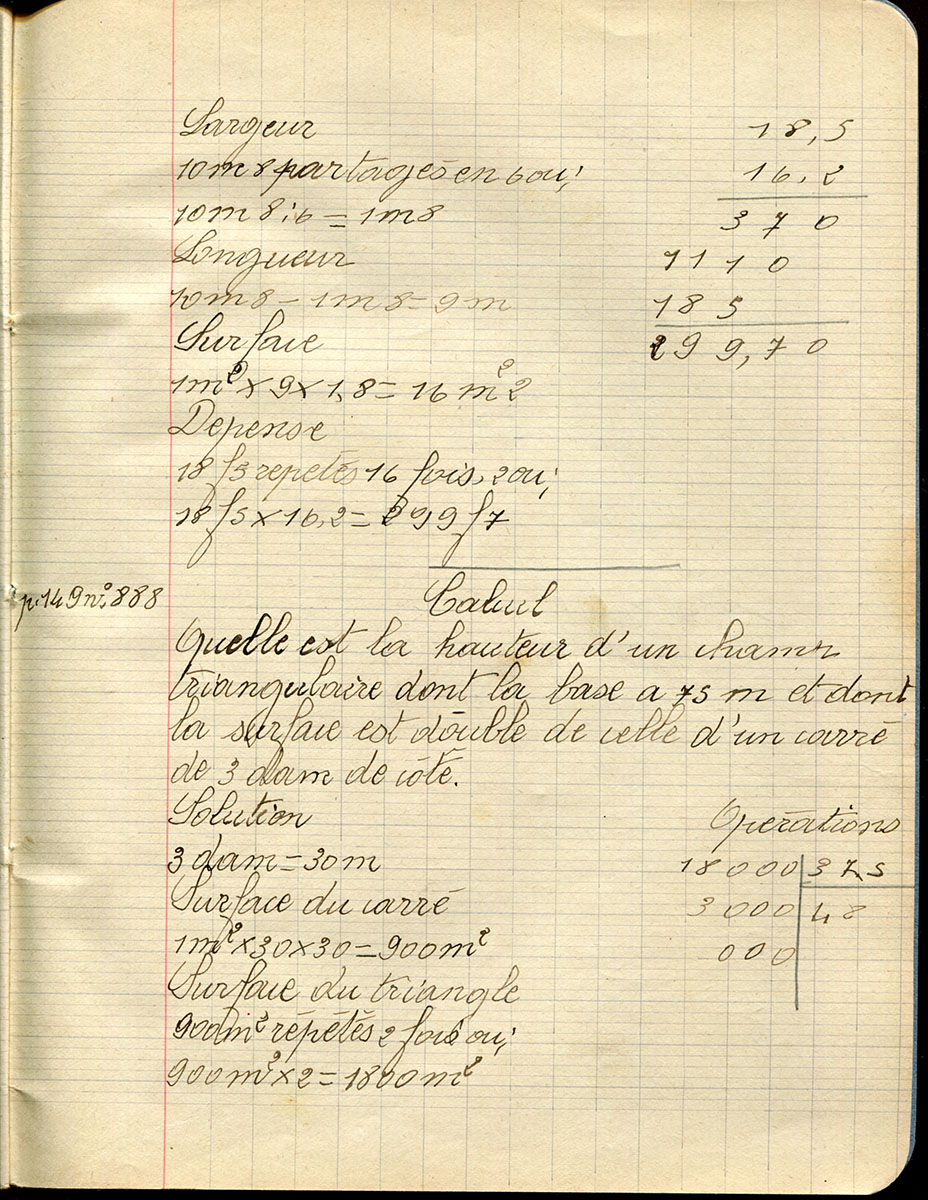 Largeur
10m 8 partagés en 6 ou;
10m 8 : 6 = 1m8
Longueur
10m8 - 1m8 = 9m
Surface
1m² × 9 × 1,8 = 16 m² 2
Depense
18 f 5 repetés 16 fois, 2 ou;
18 f 5 × 16,2 = 299 f 7
18,5
16,2
370
1110
185
299,70
p. 149 n° 888
Calcul
Quelle est la hauteur d'un champ
triangulaire dont la base a 75 m et dont
la surface est double de celle d'un carré
de 3 dam de côté.
Solution
3 dam = 30m
Surface du carré
1m² × 30 × 30 = 900m²
Surface du triangle
900m² répétés 2 fois ou;
900m² × 2 = 1800m²
Opérations
18000 37,5
3000 48
000